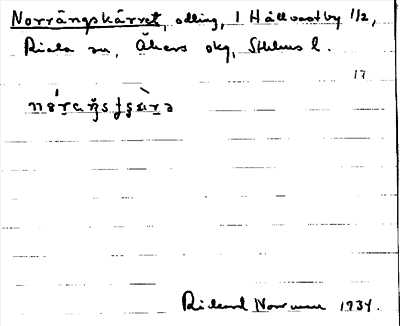 Norrängskärret, odling, 1 Hållvastby 1/2,
Riala sn, Åkers skg, Sthlms l.
17
Rickard Norrman 1934.